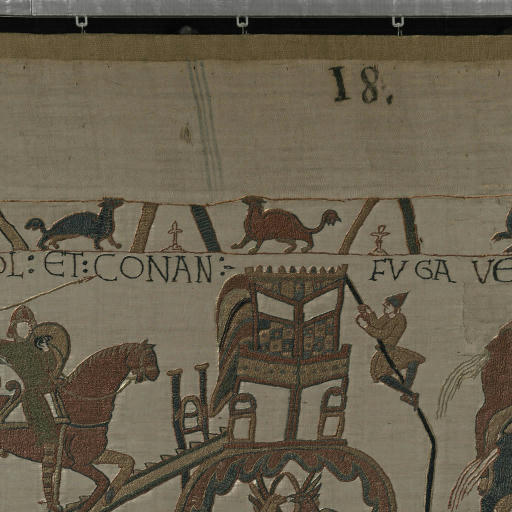 18.
OL: ET: CONAN:- FVGA VE